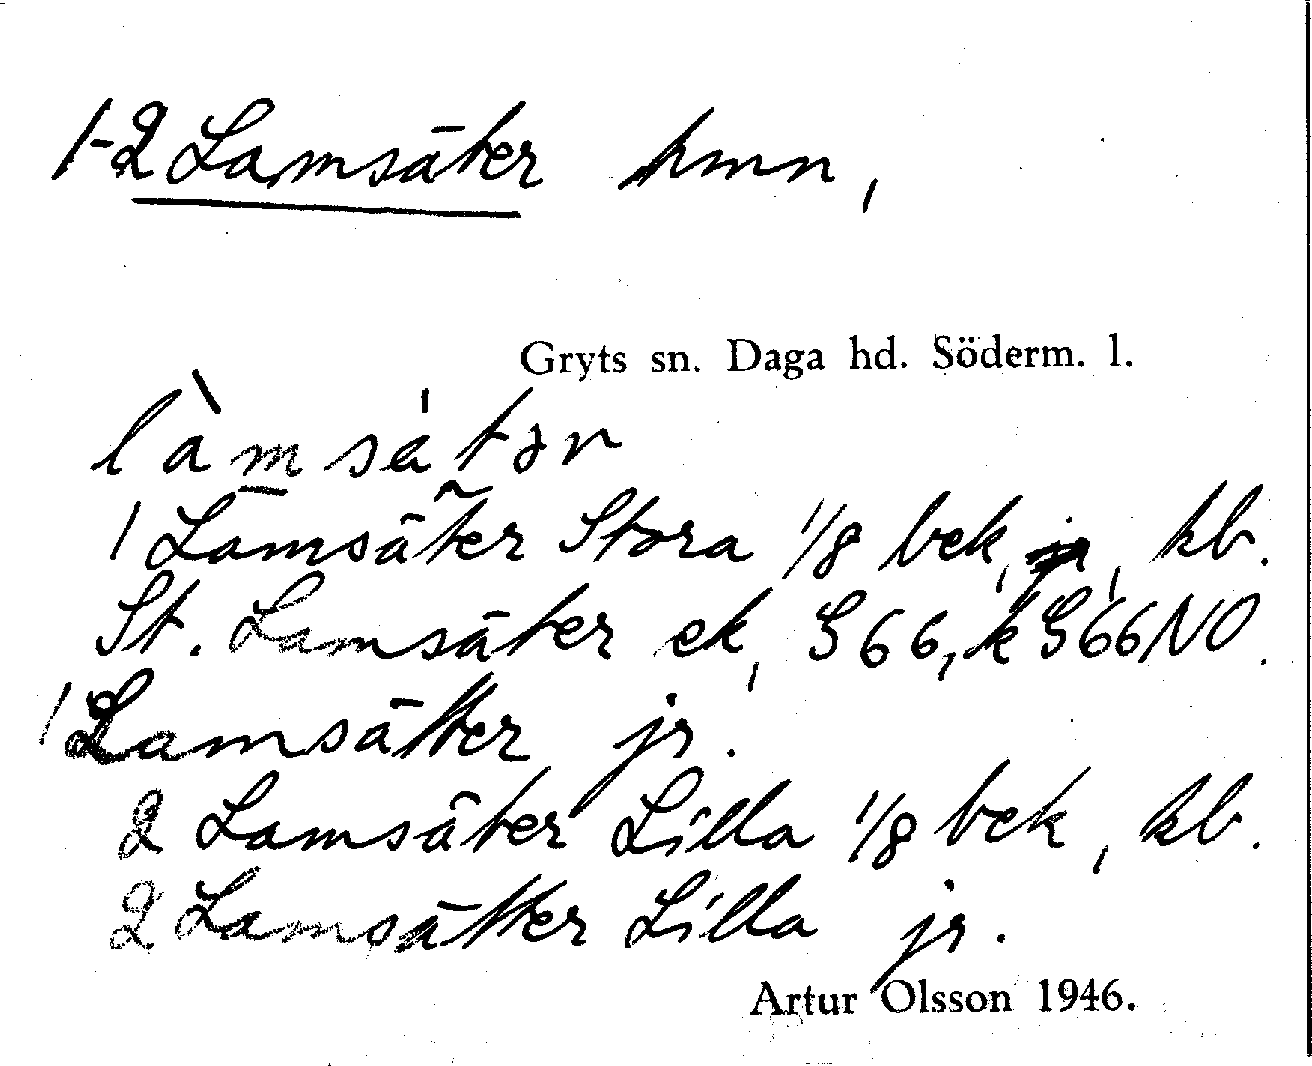 1-2 Lamsäter hmn,
Gryts sn. Daga hd. Söderm. l.
làmsätər
1 Lamsäter Stora 1/8 bek, kb.
St. Lamsäter ek, S66, k S66NO.
1 Lamsätter jr.
2 Lamsäter Lilla 1/8 bek, kb.
2 Lamsätter Lilla jr.
Artur Olsson 1946.